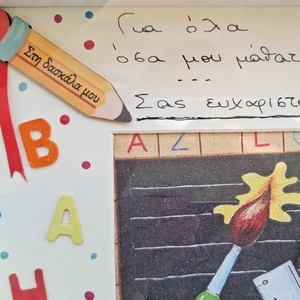 Στη δασκάλα μου
Για όλα
όσα μου μάθατ
...
Σας ευχαριστ
B
A
H
A Z L